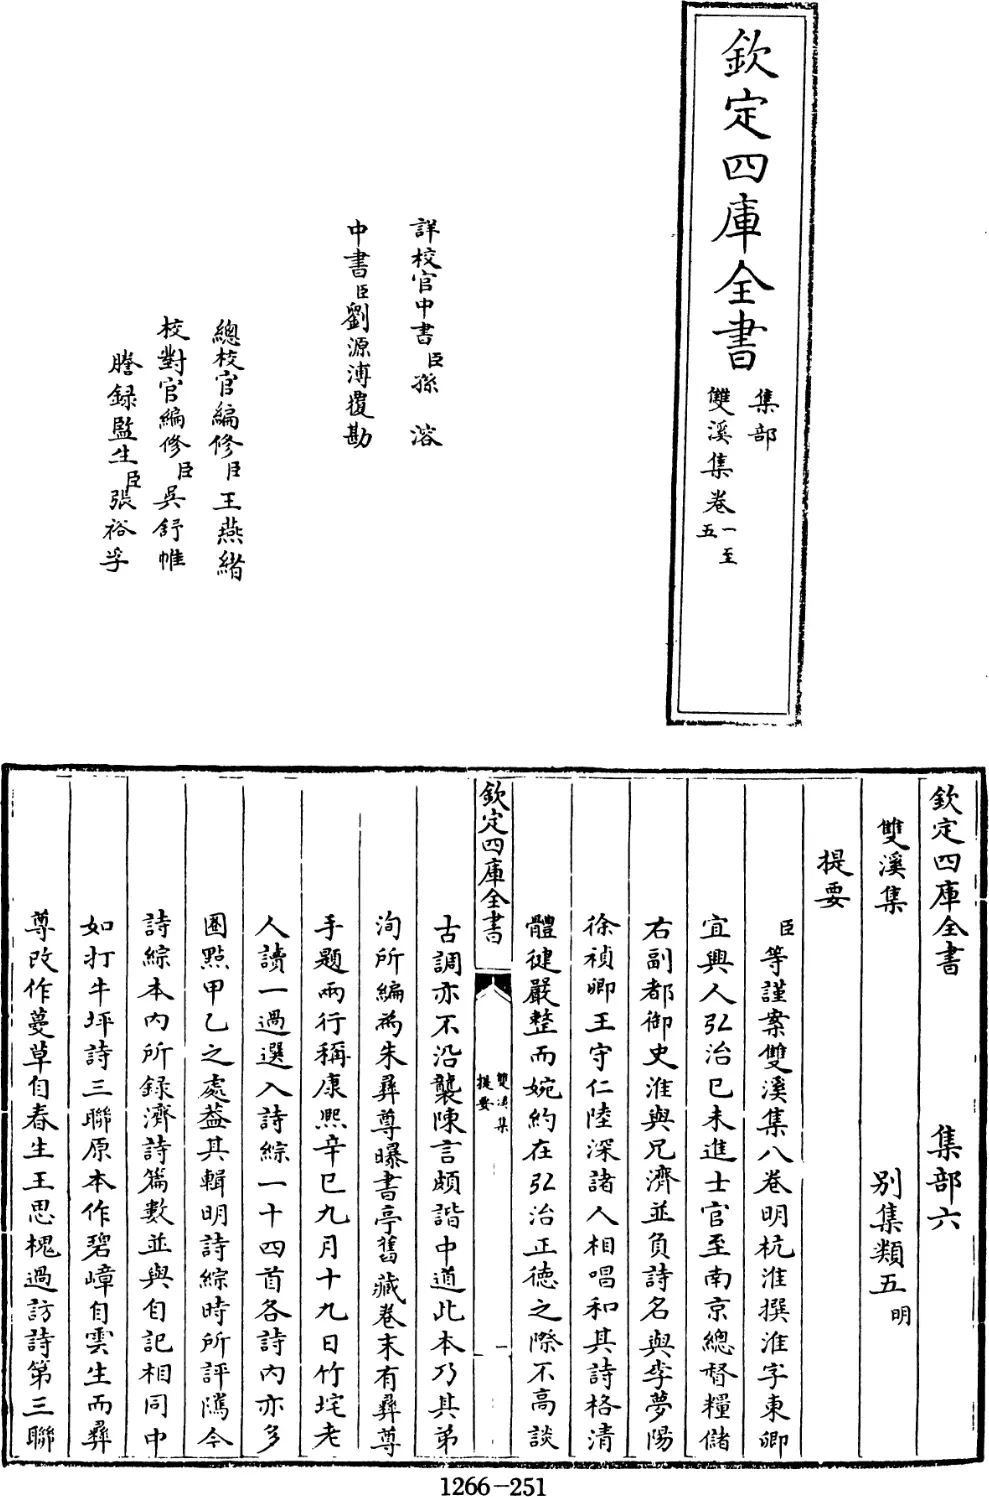 欽定四庫全書
集部
雙溪集卷一至五
詳校官中書臣孫溶
中書臣劉源溥覆勘
總校官編修臣王燕緒
校對官編修臣吳舒帷
謄録監生臣張裕孚
欽定四庫全書 集部六
雙溪集 别集類五明
提要
臣等謹案雙溪集八卷明杭淮撰淮字東卿
宜興人弘治已未進士官至南京總督糧儲
右副都御史淮與兄濟並負詩名與李夢陽
徐禎卿王守仁陸深諸人相唱和其詩格清
體健嚴整而婉約在弘治正徳之際不高談
欽定四庫全書
雙溪集
提要
一
古調亦不沿襲陳言頗諧中道此本乃其弟
洵所編為朱彛尊曝書亭舊藏卷末有彛尊
手題兩行稱康熙辛巳九月十九日竹垞老
人讀一過選入詩綜一十四首各詩内亦多
圏點甲乙之處葢其輯明詩綜時所評隲今
詩綜本内所録濟詩篇數並與自記相同中
如打牛坪詩三聯原本作碧嶂自雲生而彛
尊改作蔓草自春生王思槐過訪詩第三聯
1266-251